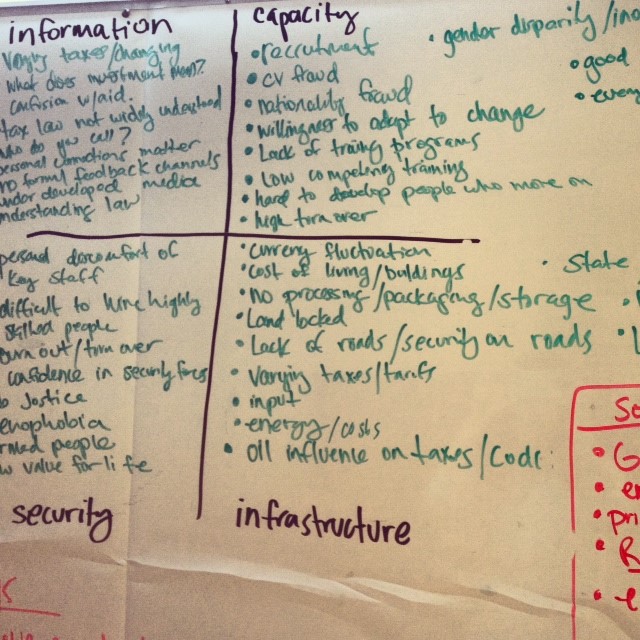 information
varying taxes/changing
what does investment mean?
confusion w/aid.
tax law not widely understood
who do you call?
personal connections matter
no formal feedback channels
under developed media
understanding law
capacity
• recruitment
• cv fraud
• nationality fraud
• willingness to adapt to change
• Lack of training programs
• Low competency training
• hard to develop people who move on
• high turnover
• gender disparity/
• good
• every
personal discomfort of
key staff
difficult to hire highly
skilled people
burn out/turn over
confidence in security forces
o Justice
enophobia
rmed people
w value for life
security
• currency fluctuation
• cost of living/buildings
• No processing/packaging/storage
• Land locked
• Lack of roads/security on roads
• varying taxes/tarifs
• input
• energy/costs
• Oil influence on taxes/code
infrastructure
• State
So
• G
• en
• pri
• R
• e